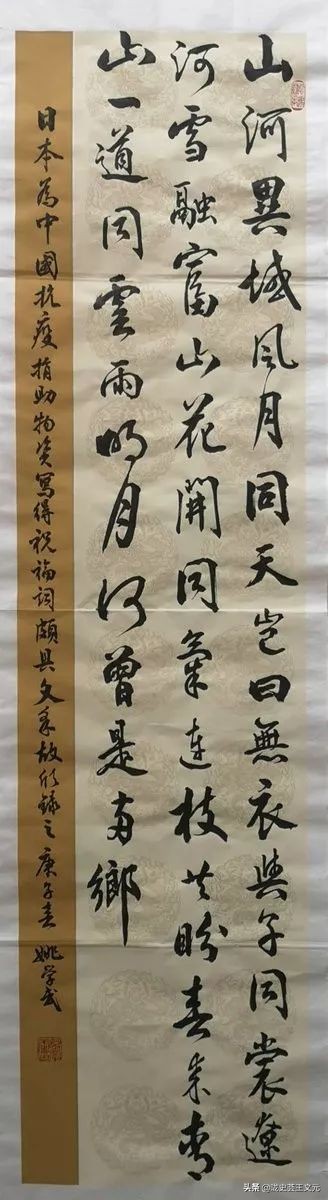 山河異域風月同天豈曰無衣與子同裳遼
河雪融富山花開同氣連枝共盼春來青
山一道同雲雨明月何曾是兩鄉
日本為中國抗疫捐助物資寫得祝福詞頗具文采故欣錄之庚子春 姚学武
头条 @陇史荛王文元